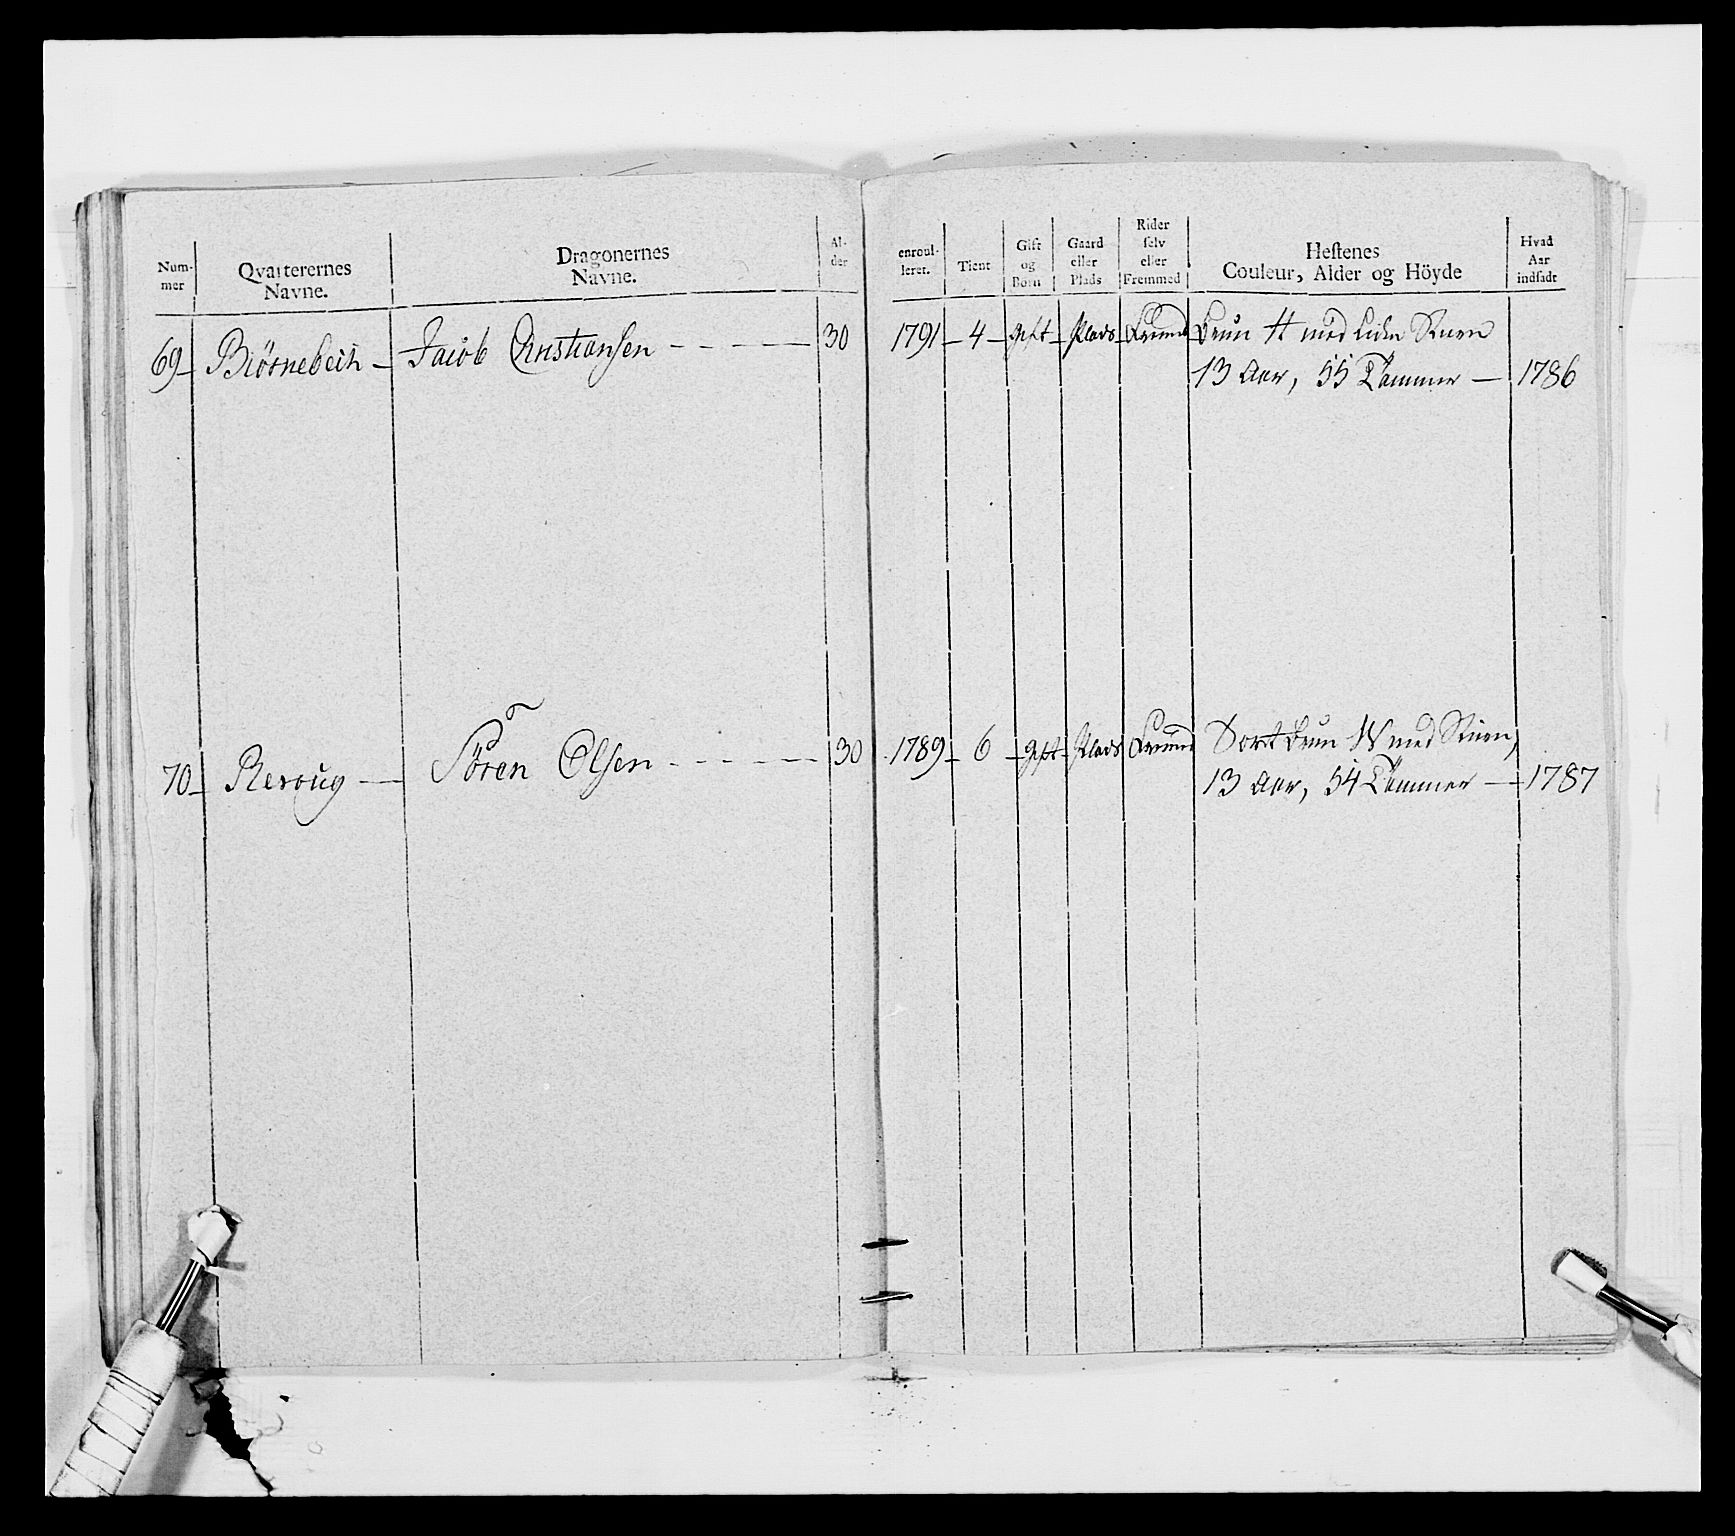 Num-
mer
Qvarterernes
Navne.
Dragonernes
Navne.
Al-
der
enroul-
leret.
Tient
Gift
og
Børn
Gaard
eller
Plads
Rider
selv
eller
Fremmed
Hestenes
Couleur, Alder og Höyde
Hvad
Aar
indsadt
69 Biörnebech Jacob Christiansen 30 1791 4 gift Plads Fremd Brun H med liden Stiern
13 Aar, 55 Tommer 1786
70 Sören Olsen 30 1789 6 gift Plads Fremd Sort brun W med Stiern,
13 Aar, 54 Tommer 1787